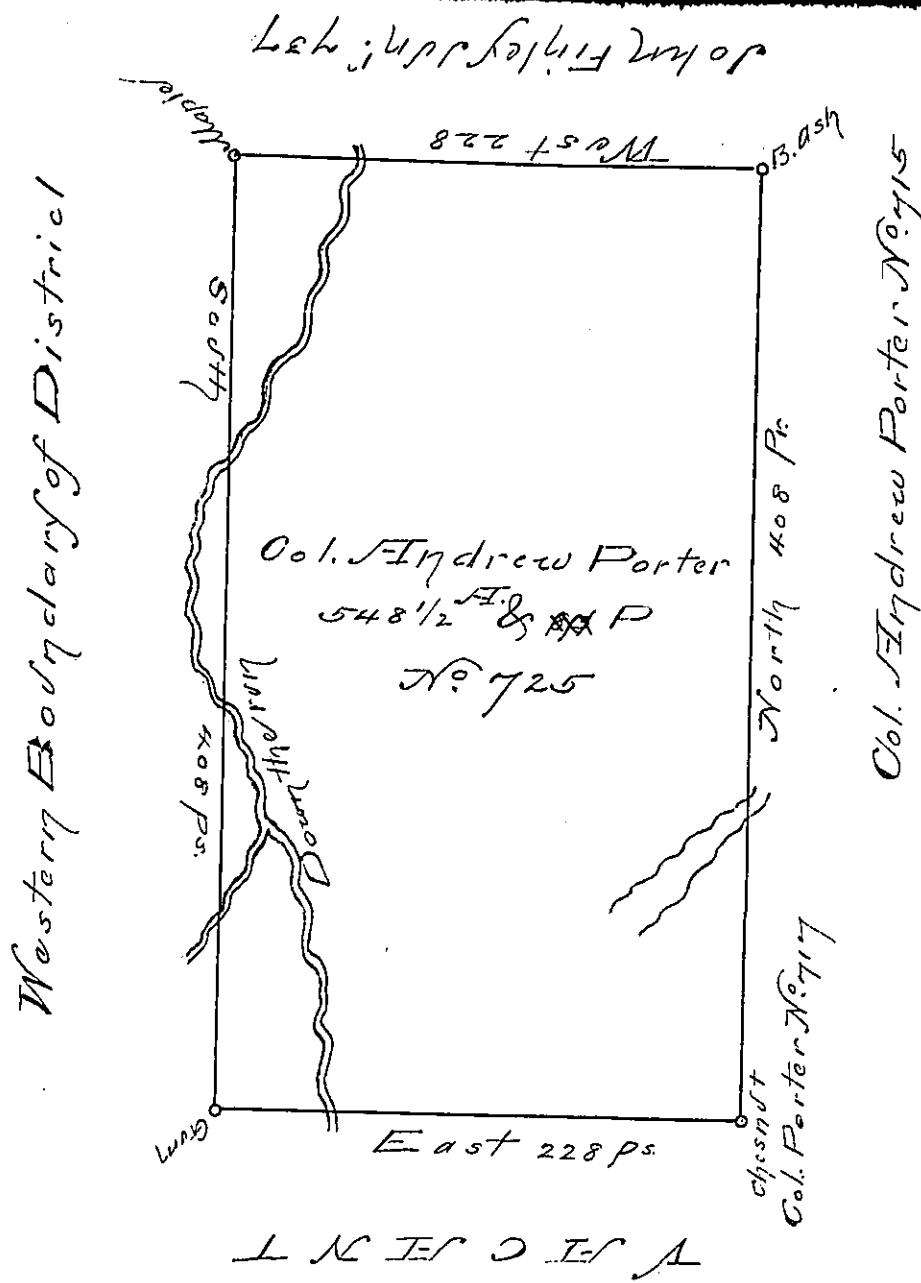 John Finley Junr. 737
Maple
West 228
B. ash
Western Boundary of District
South
408 ps.
Col. Andrew Porter
548 1/2 A. & P
No. 725
Down the run
North 408 Pr.
Col. Andrew Porter No. 715
Gum
East 228 ps.
Chesnut
Col. Porter No. 717
VACANT